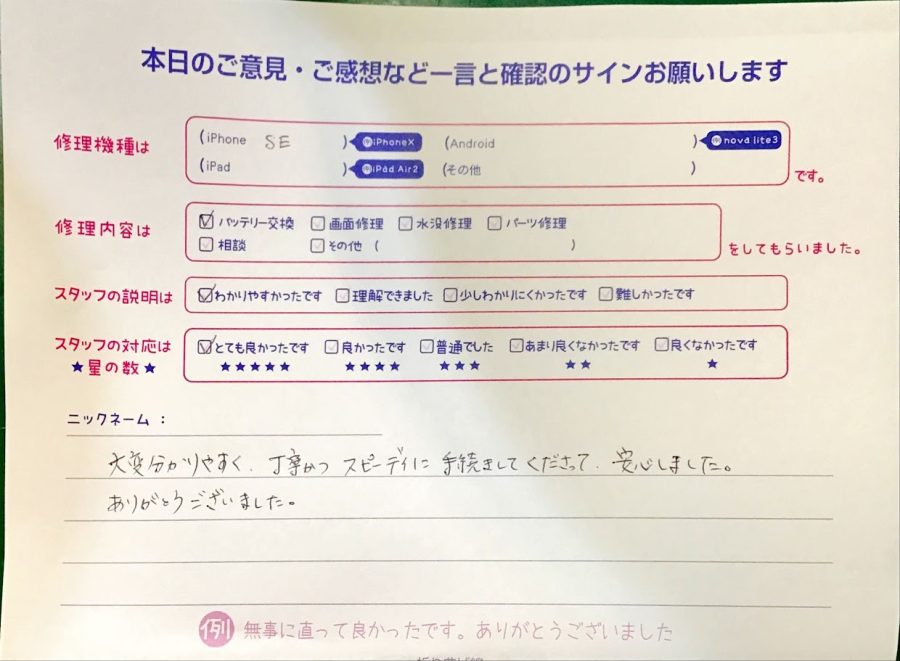 本日のご意見・ご感想など一言と確認のサインお願いします
修理機種は (iPhone SE ) iPhoneX (Android ) nova lite3
(iPad ) iPad Air2 (その他 ) です。
修理内容は バッテリー交換 画面修理 水没修理 パーツ修理
相談 その他 ( ) をしてもらいました。
スタッフの説明は わかりやすかったです 理解できました 少しわかりにくかったです 難しかったです
スタッフの対応は とても良かったです 良かったです 普通でした あまり良くなかったです 良くなかったです
★星の数★ ★★★★★ ★★★★ ★★★ ★★ ★
ニックネーム:
大変分かりやすく、丁寧かつスピーディに手続きしてくださって、安心しました。
ありがとうございました。
例 無事に直って良かったです。ありがとうございました